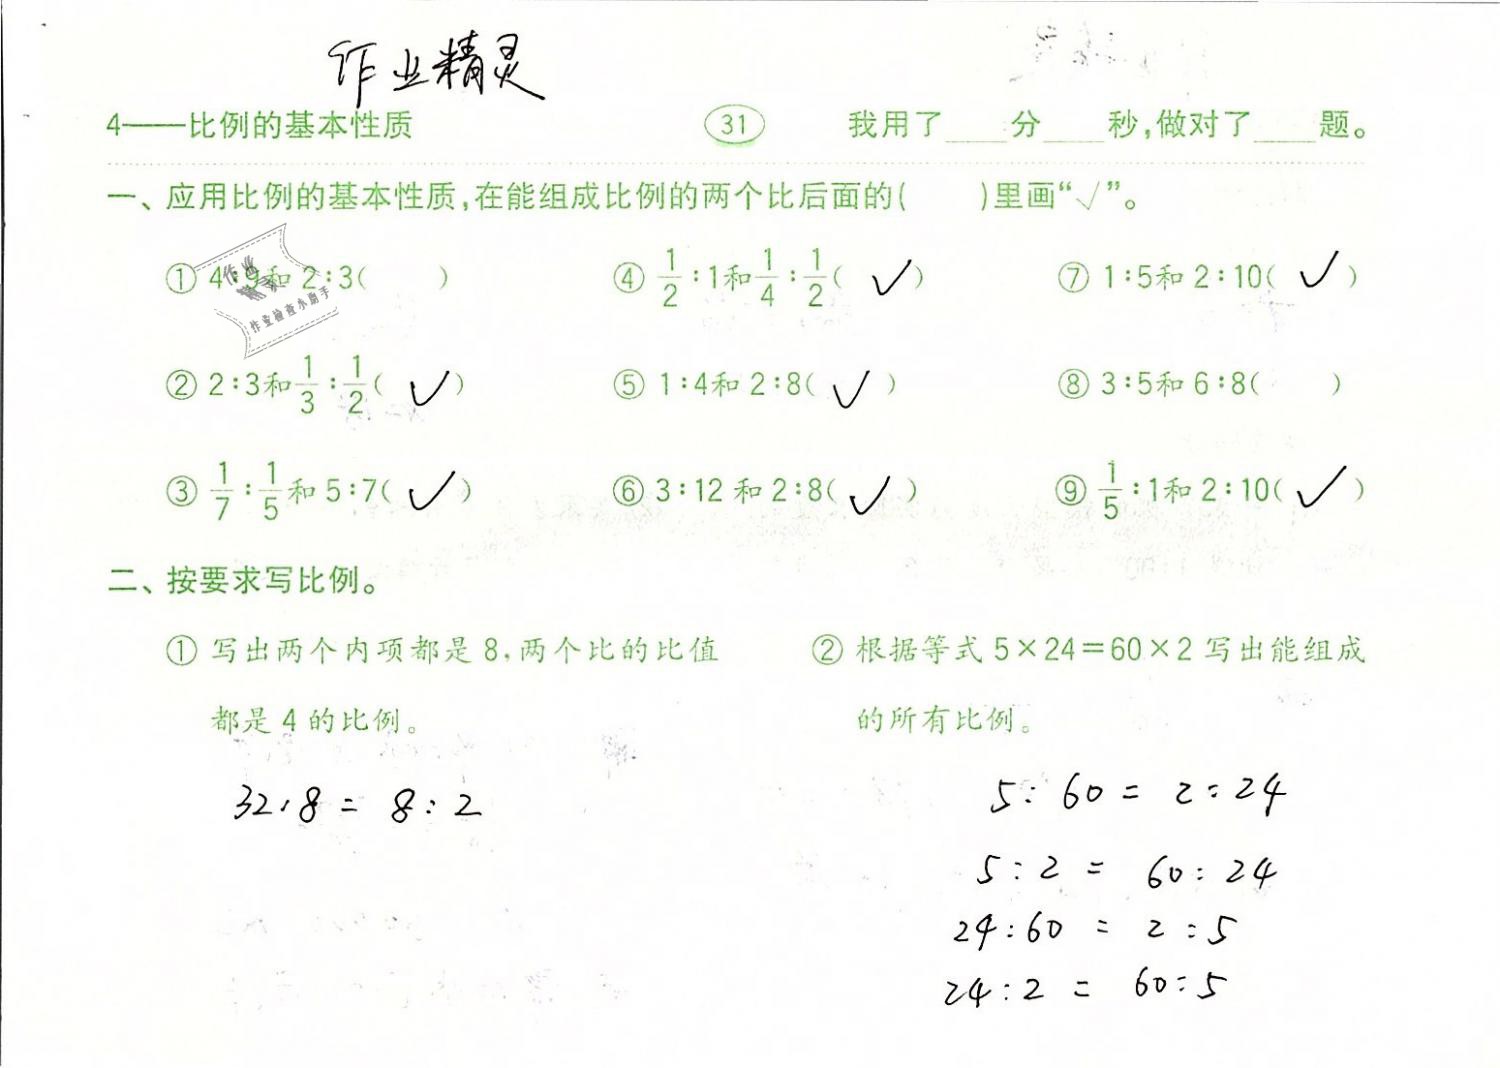 作业精灵
4——比例的基本性质 31 我用了____分____秒,做对了____题。
一、应用比例的基本性质,在能组成比例的两个比后面的( )里画“√”。
① 4∶9和2∶3( ) ④ 1/2∶1和1/4∶1/2( ✓ ) ⑦ 1∶5和2∶10( ✓ )
② 2∶3和1/3∶1/2( ✓ ) ⑤ 1∶4和2∶8( ✓ ) ⑧ 3∶5和6∶8( )
③ 1/7∶1/5和5∶7( ✓ ) ⑥ 3∶12和2∶8( ✓ ) ⑨ 1/5∶1和2∶10( ✓ )
作业
作业检查小助手
二、按要求写比例。
① 写出两个内项都是8,两个比的比值
都是4的比例。
32:8 = 8:2
② 根据等式5×24=60×2写出能组成
的所有比例。
5:60 = 2:24
5:2 = 60:24
24:60 = 2:5
24:2 = 60:5